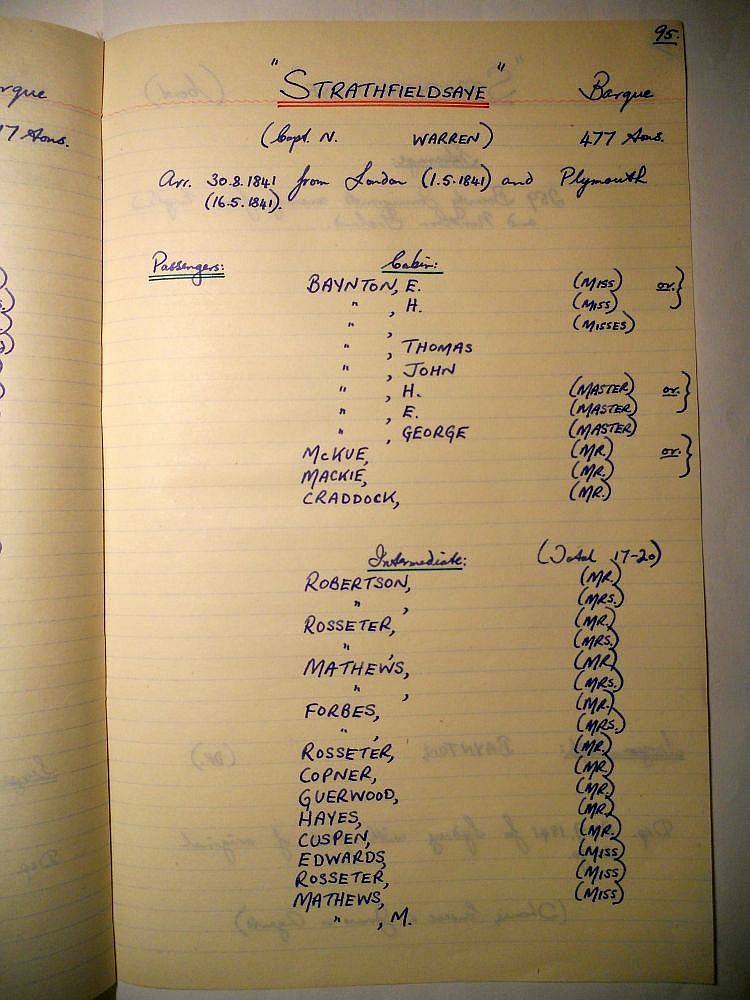 95.
"STRATHFIELDSAYE" Barque
(Capt. N. WARREN) 477 tons.
Arr. 30.8.1841 from London (1.5.1841) and Plymouth
(16.5.1841).
Passengers: Cabin:
BAYNTON, E. (MISS) or }
" , H. (MISS)
" , (MISSES)
" , THOMAS
" , JOHN
" , H. (MASTER) or }
" , E. (MASTER)
" , GEORGE (MASTER)
McKUE, (MR) or }
MACKIE, (MR.)
CRADDOCK, (MR.)
Intermediate: (Total 17-20)
ROBERTSON, (MR.)
" , (MRS.)
ROSSETER, (MR.)
" , (MRS.)
MATHEWS, (MR)
" , (MRS.)
FORBES, (MR.)
" , (MRS.)
ROSSETER, (MR.)
COPNER, (MR.)
GUERWOOD, (MR.)
HAYES, (MR.)
CUSPEN, (MR.)
EDWARDS, (MISS)
ROSSETER, (MISS)
MATHEWS, (MISS)
" , M.
rque
17 tons.